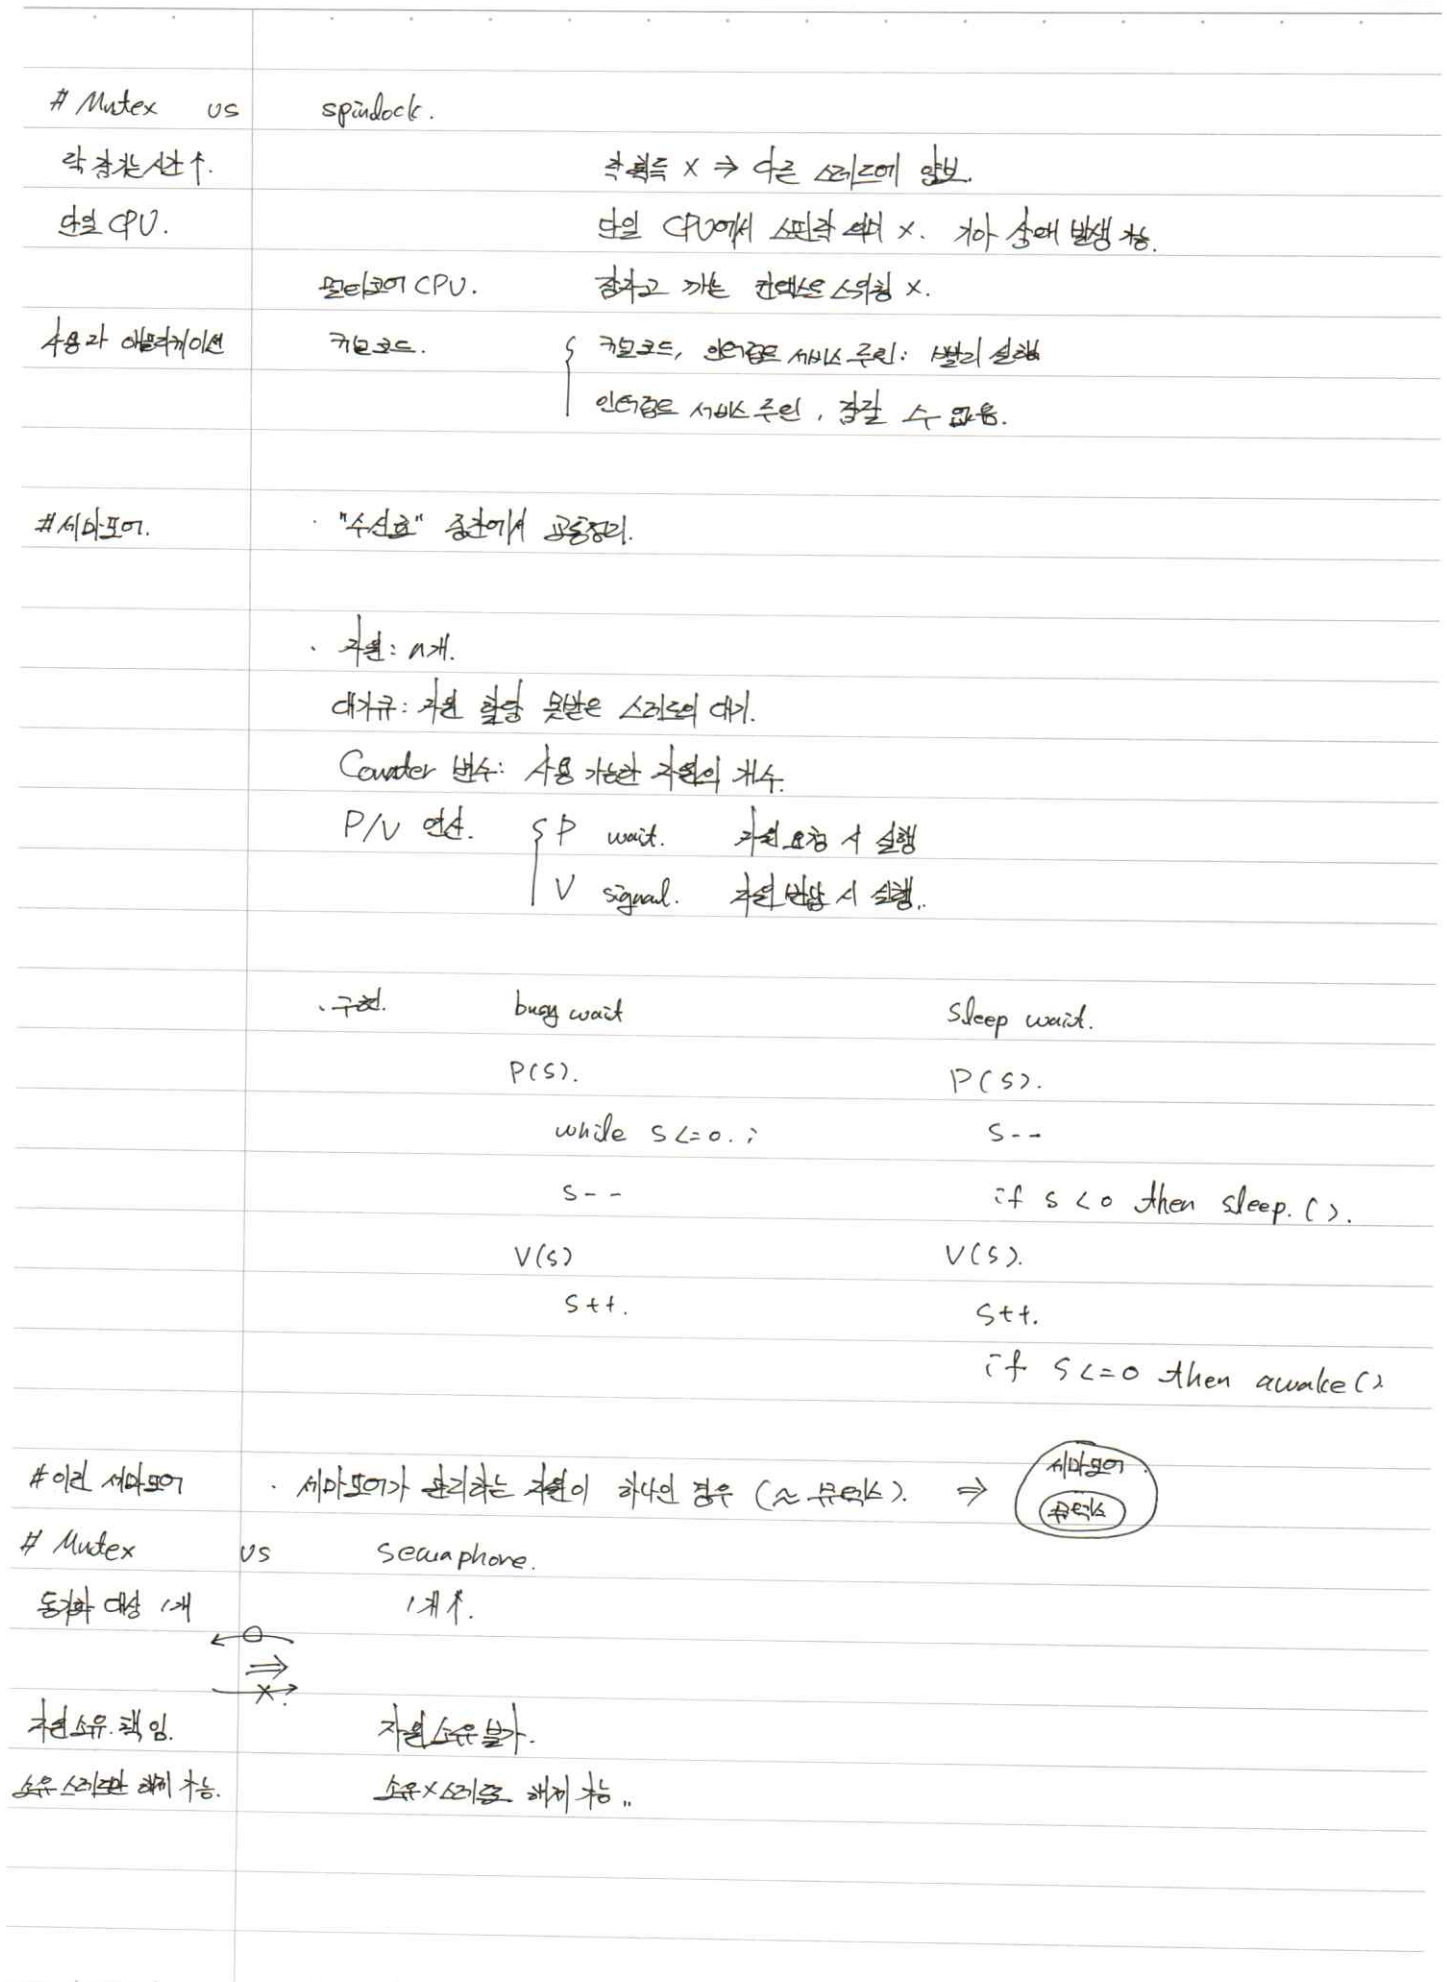 # Mutex vs spinlock.
락 잠기는 시간 ↑. 락 획득 X ⇒ 다른 스레드에 양보.
단일 CPU. 단일 CPU에서 스핀락 의미 X. 기아 상태 발생 가능.
멀티코어 CPU. 잠자고 깨는 컨텍스트 스위칭 X.
사용자 애플리케이션 커널코드. { 커널코드, 인터럽트 서비스 루틴: 빨리 실행
인터럽트 서비스 루틴, 잠잘 수 없음.
# 세마포어. · "수신호" 중간에서 교통정리.
· 자원: n개.
대기큐: 자원 할당 못받은 스레드의 대기.
Counter 변수: 사용 가능한 자원의 개수.
P/V 연산. { P wait. 자원 요청 시 실행
V signal. 자원 반납 시 실행..
· 구현. busy wait sleep wait.
P(S). P(S).
while S<=0. ; S--
S-- if S<0 then sleep.().
V(S) V(S).
S++. S++.
if S<=0 then awake()
# 이진 세마포어 · 세마포어가 관리하는 자원이 하나인 경우 (≈ 뮤텍스). ⇒ 세마포어.
뮤텍스
# Mutex vs semaphore.
동기화 대상 1개 1개↑.
← O
⇒
X. →
자원소유. 책임. 자원 소유 불가.
소유 스레드만 해제 가능. 소유X 스레드 해제 가능..